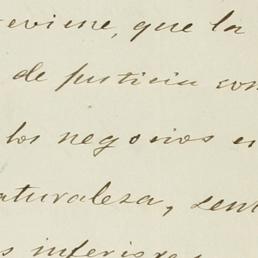 eviene, que la
de justicia con
los negocios en
naturaleza, sent
s inferiores